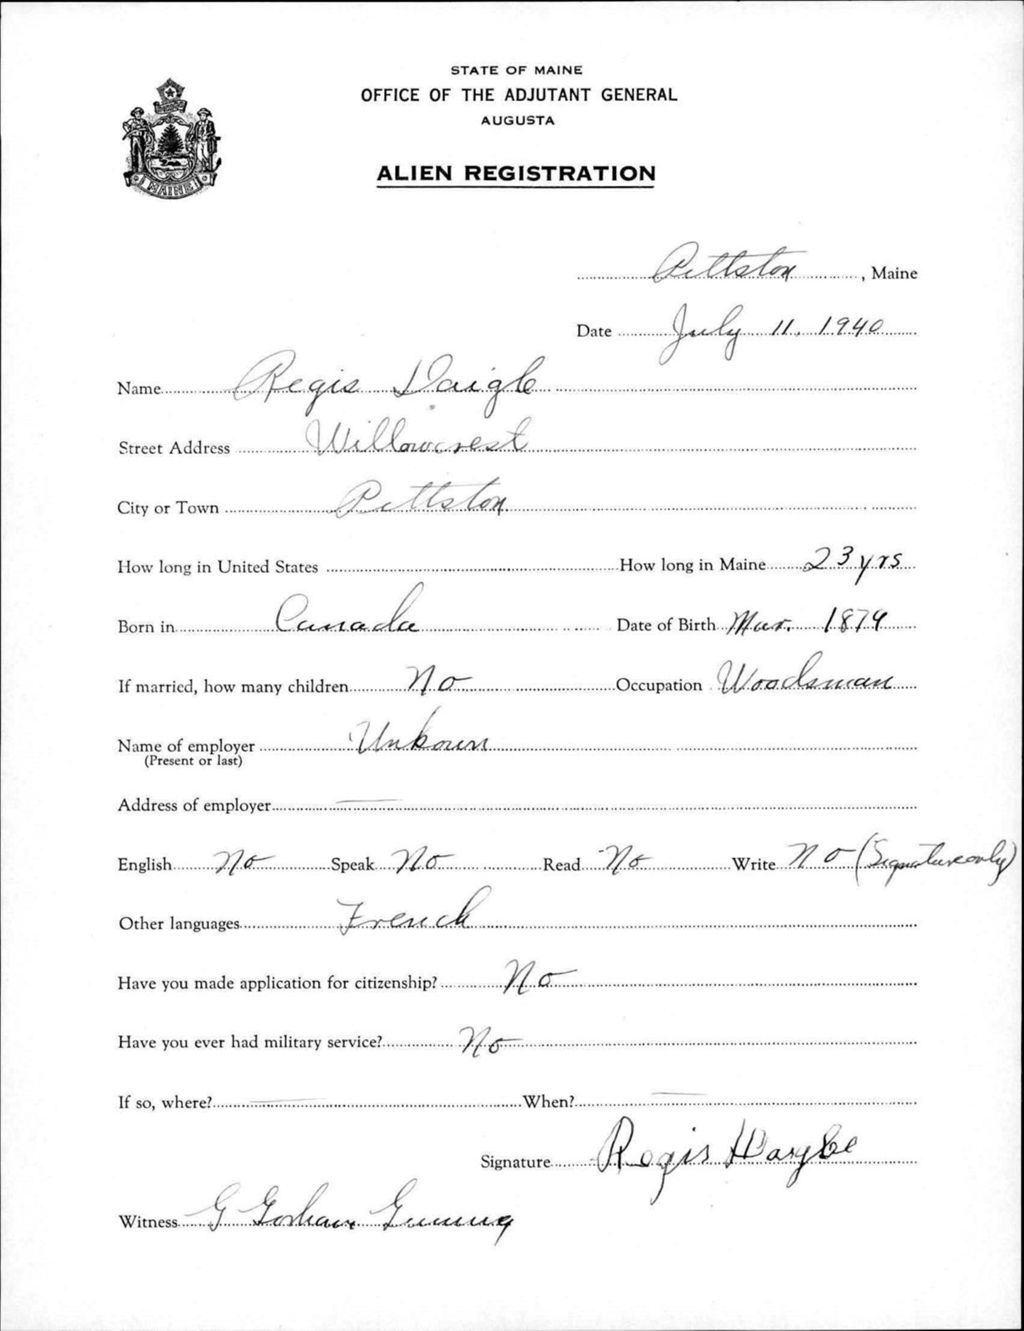 STATE OF MAINE
OFFICE OF THE ADJUTANT GENERAL
AUGUSTA
ALIEN REGISTRATION
MAINE
Pittston, Maine
Date July 11, 1940
Name Regis Daigle
Street Address Willowcrest
City or Town Pittston
How long in United States How long in Maine 23 yrs
Born in Canada Date of Birth Mar. 1879
If married, how many children No Occupation Woodsman
Name of employer Unkown
(Present or last)
Address of employer —
English No Speak No Read No Write No (Signature only)
Other languages French
Have you made application for citizenship? No
Have you ever had military service? No
If so, where? — When? —
Signature Regis Daigle
Witness G Gorham